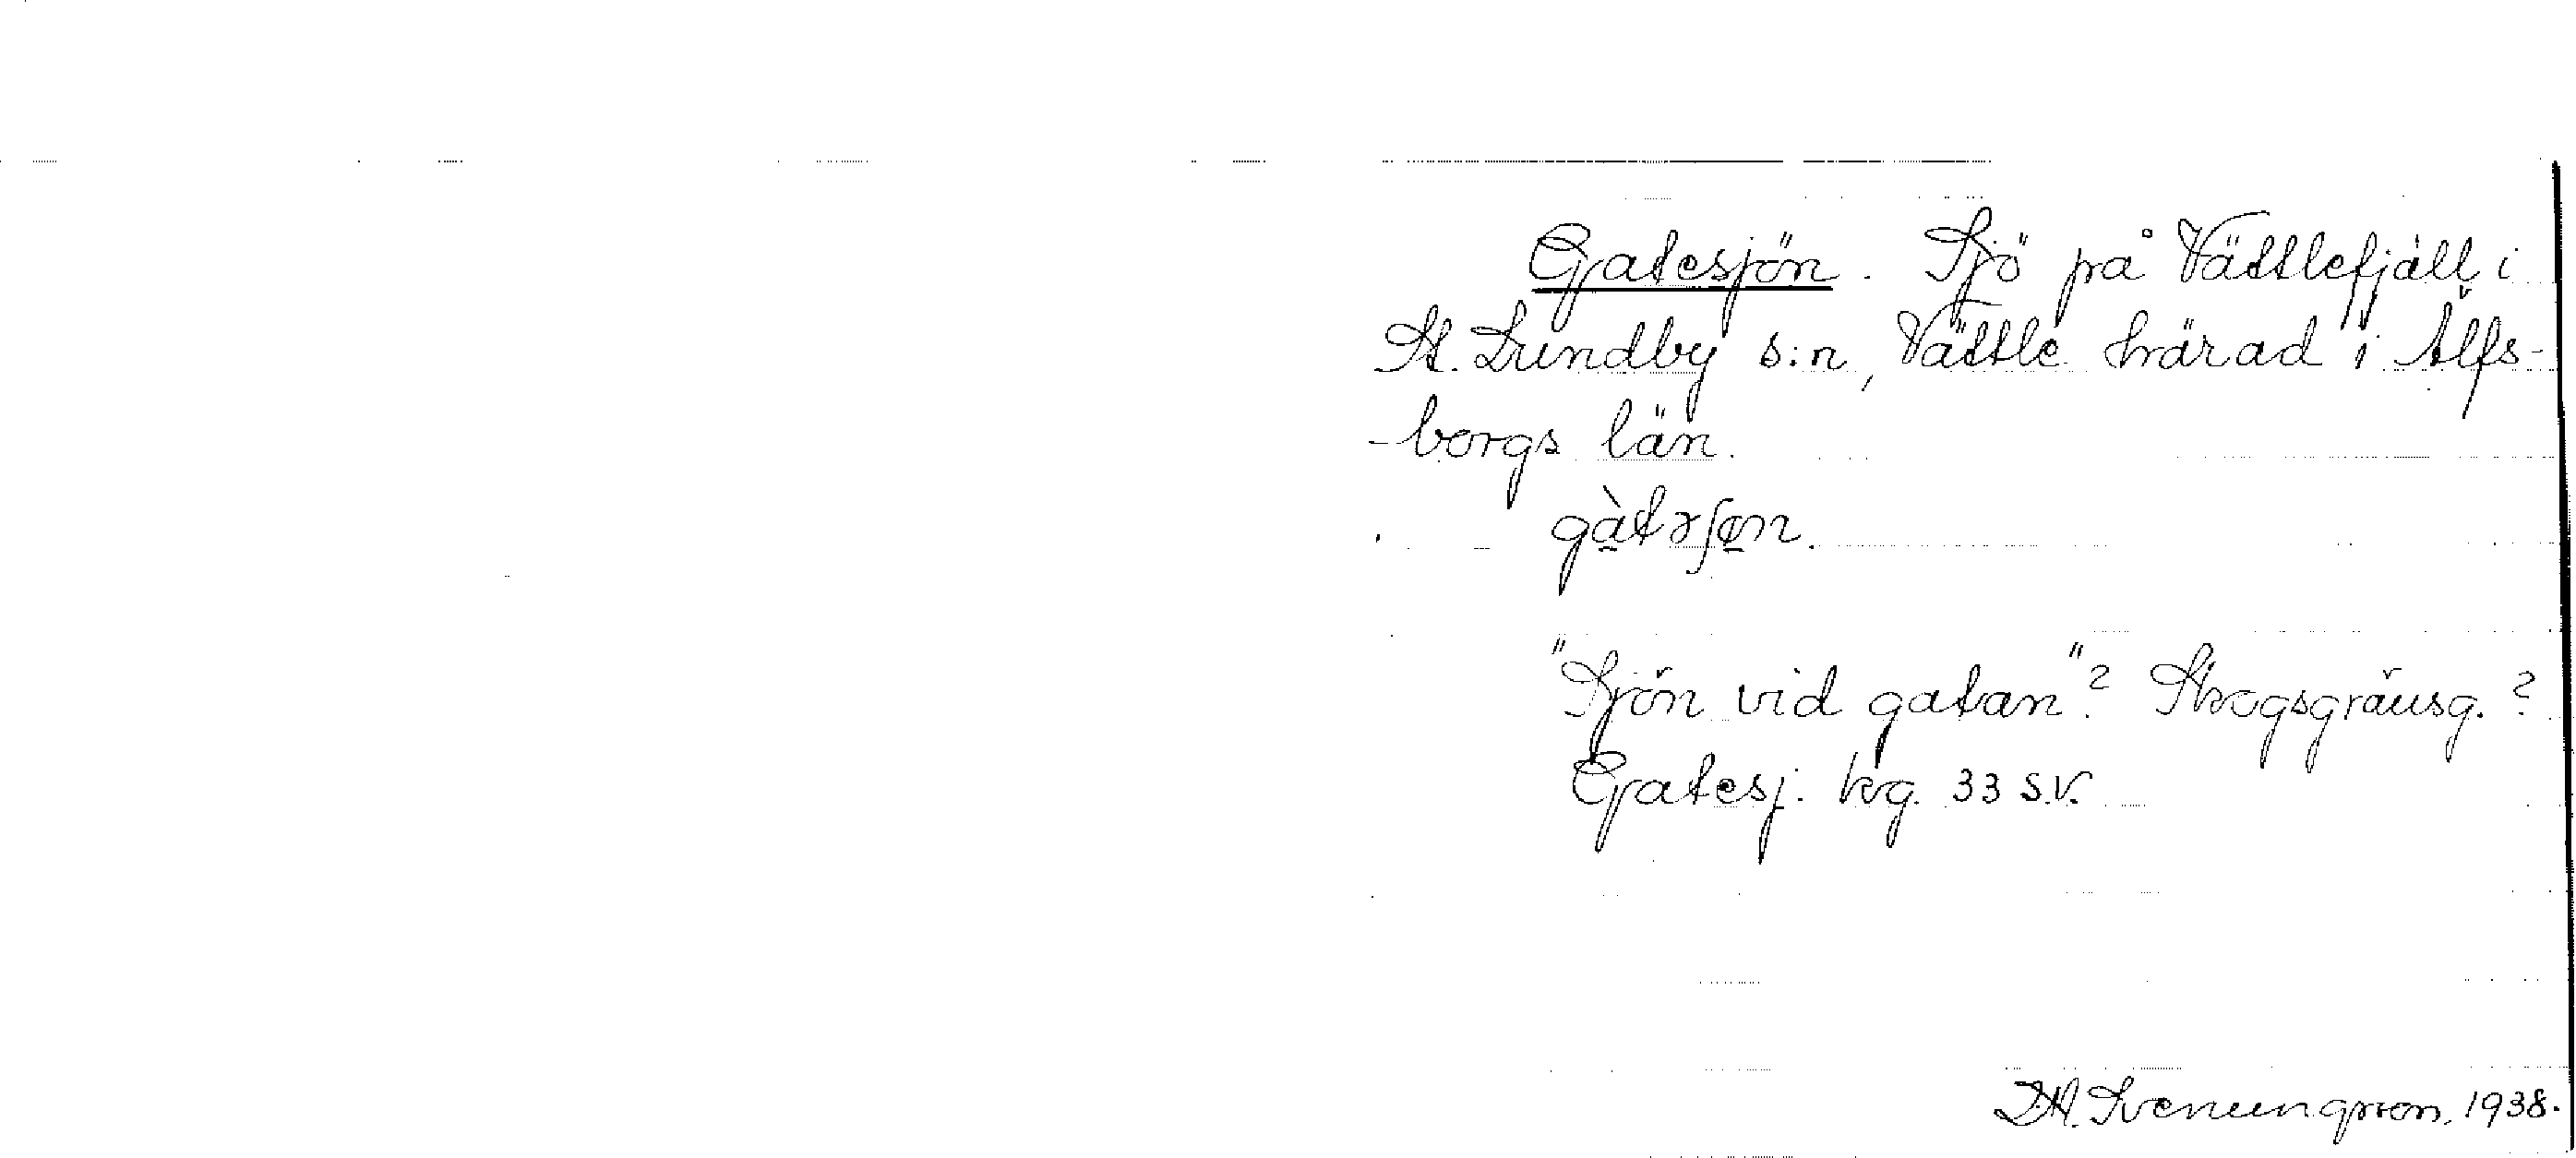 Gatesjön. Sjö på Vättlefjäll i
St. Lundby s:n, Vättle härad i Älfs-
-borgs län.
gàtəʃøn.
"Sjön vid gatan"? Skogsgräusg.?
Gatesj. kg. 33 s.v.
Svenungsson, 1938.